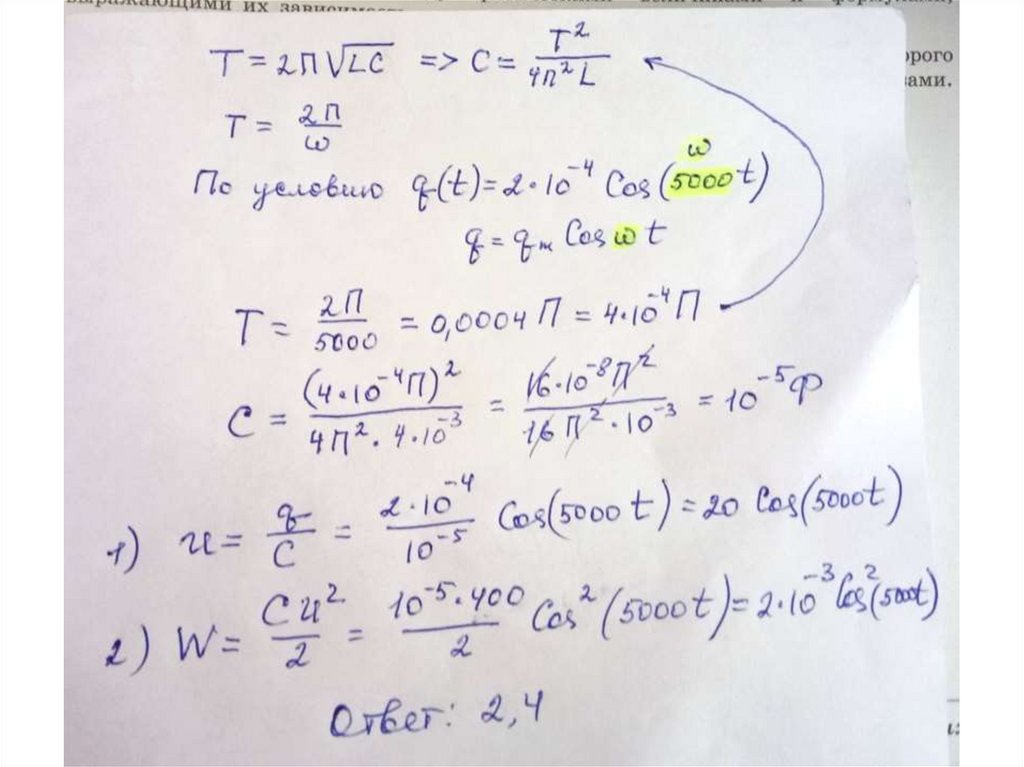 выражающими их зависимость
орого
ами.
T = 2П√LC => C = T²/4П²L
T = 2П/ω
ω
По условию q(t) = 2·10⁻⁴ Cos(5000t)
q = qₘ Cos ωt
T = 2П/5000 = 0,0004П = 4·10⁻⁴П
C = (4·10⁻⁴П)²/4П²·4·10⁻³ = 16·10⁻⁸П²/16П²·10⁻³ = 10⁻⁵Ф
1) u = q/C = 2·10⁻⁴/10⁻⁵ Cos(5000t) = 20 Cos(5000t)
2) W = Cu²/2 = 10⁻⁵·400/2 Cos²(5000t) = 2·10⁻³Cos²(5000t)
Ответ: 2,4